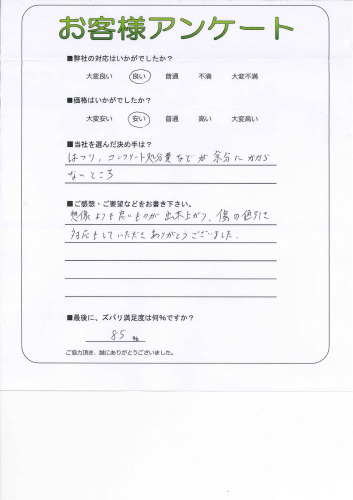 お客様アンケート
■弊社の対応はいかがでしたか?
大変良い 良い 普通 不満 大変不満
■価格はいかがでしたか?
大変安い 安い 普通 高い 大変高い
■当社を選んだ決め手は?
はつり、コンクリート処分費などが余分にかから
ないところ
■ご感想・ご要望などをお書き下さい。
想像よりも良いものが出来上がり、傷の値引き
対応もしていただきありがとうございました。
■最後に、ズバリ満足度は何%ですか?
85 %
ご協力頂き、誠にありがとうございました。